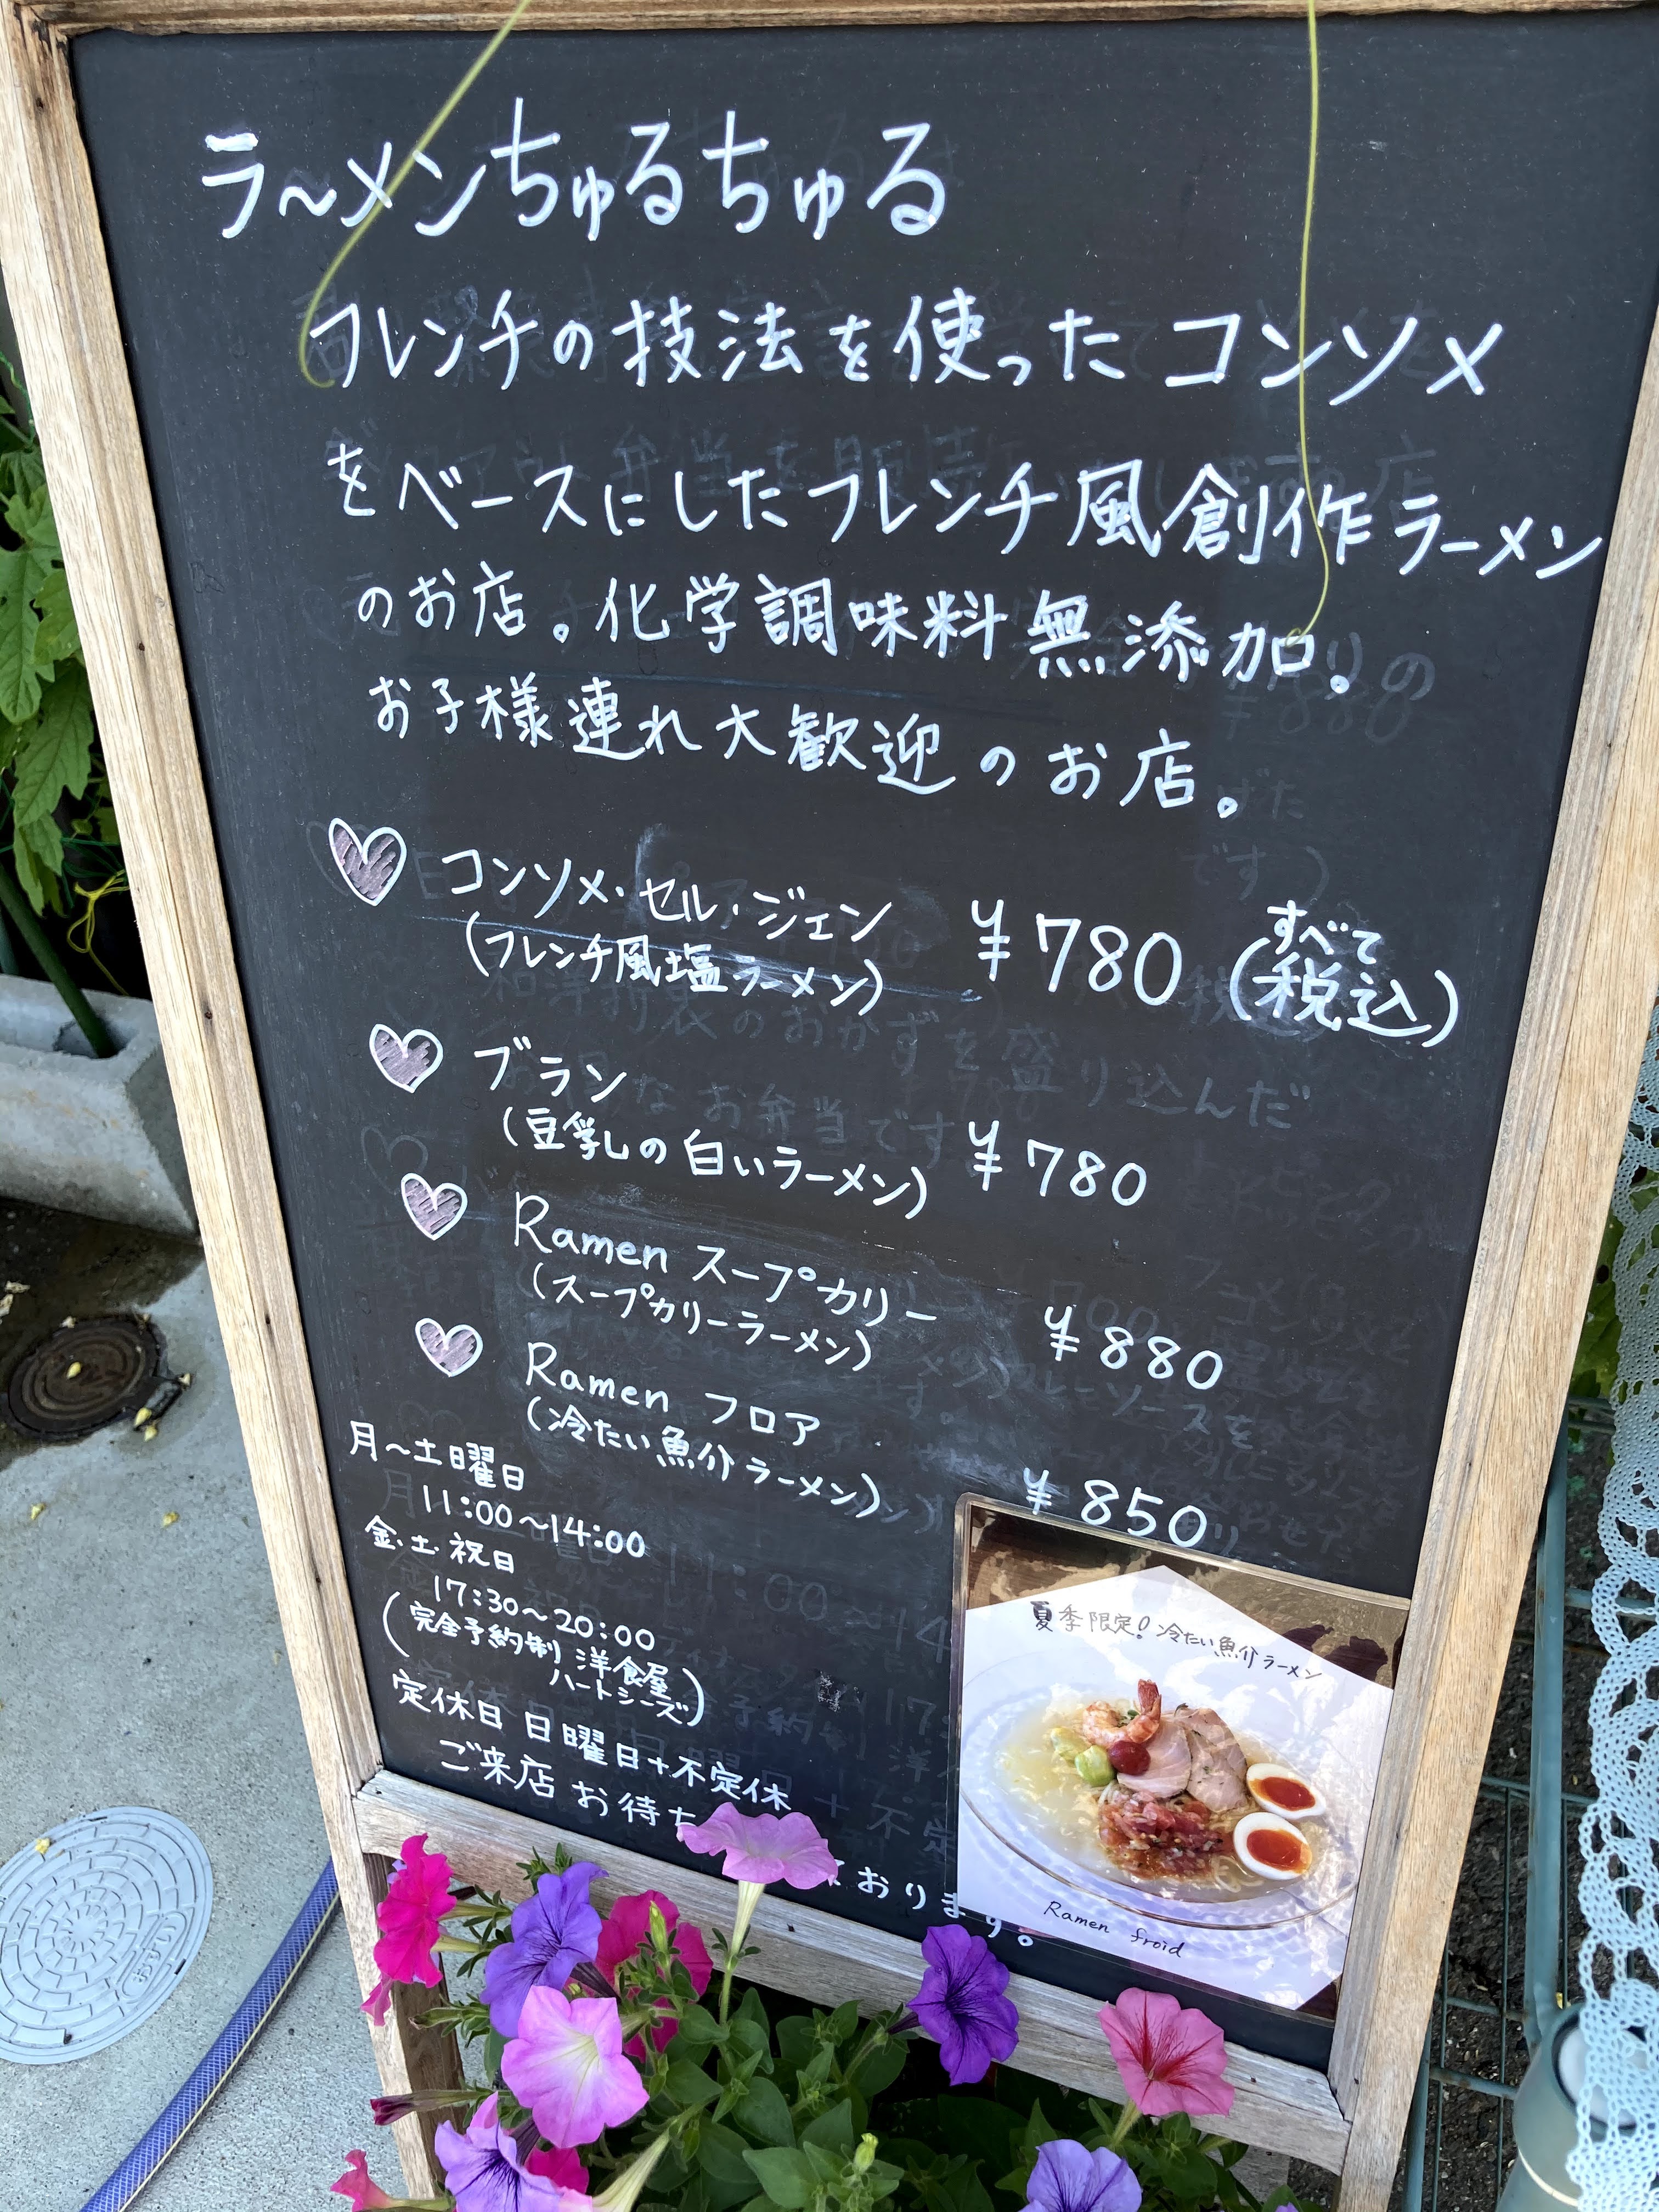 ラ〜メンちゅるちゅる
フレンチの技法を使ったコンソメ
をベースにしたフレンチ風創作ラーメン
のお店。化学調味料無添加。
お子様連れ大歓迎のお店。
コンソメ・セル・ジェン
(フレンチ風塩ラーメン)
¥780 (すべて税込)
ブラン
(豆乳しの白いラーメン) ¥780
Ramen スープカリー
(スープカリーラーメン) ¥880
Ramen フロア
(冷たい魚介ラーメン)
¥850
月〜土曜日
11:00〜14:00
金.土.祝日
17:30〜20:00
(完全予約制 洋食屋
ハートシーズ)
定休日 日曜日+不定休
ご来店お待ち
ております。
夏季限定!冷たい魚介ラーメン
Ramen froid
おすい